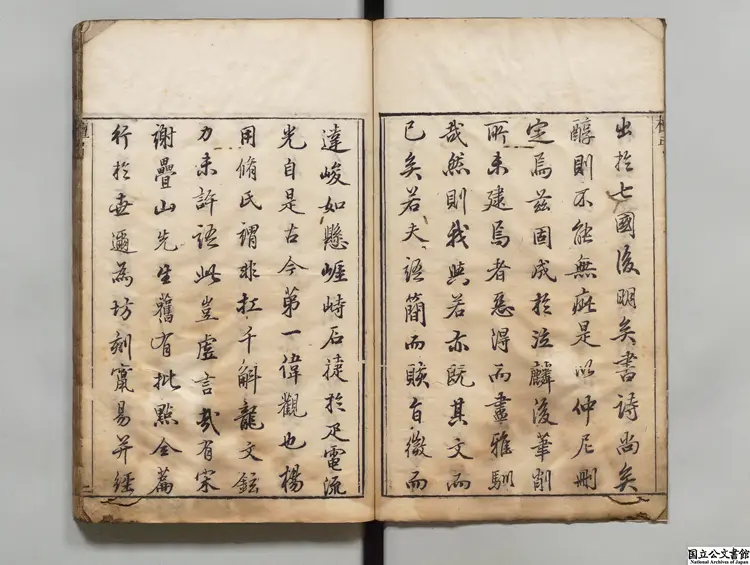 出於七國後明矣書詩尚矣
醇則不能無疵是以仲尼刪
定焉茲固成於泣麟後筆削
所未建焉者惡得而盡雅馴
哉然則我與若亦既其文而
已矣若夫語簡而賅旨微而
達峻如懸崖峙石捷於疋電流
光自是古今第一偉觀也楊
用脩氏謂非扛千斛龍文鉉
力未許語此豈虛言哉有宋
謝疊山先生舊有批點全篇
行於世邇為坊刻竄易并經
二
国立公文書館
National Archives of Japan